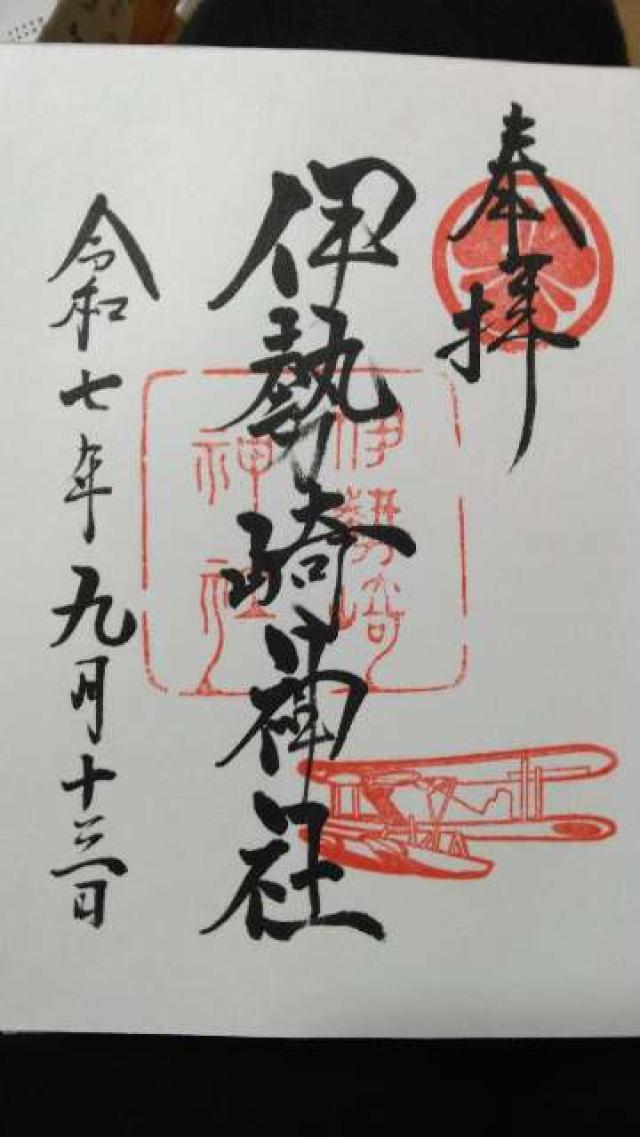 奉拝
伊勢崎神社
令和七年九月十三日
伊勢崎
神社